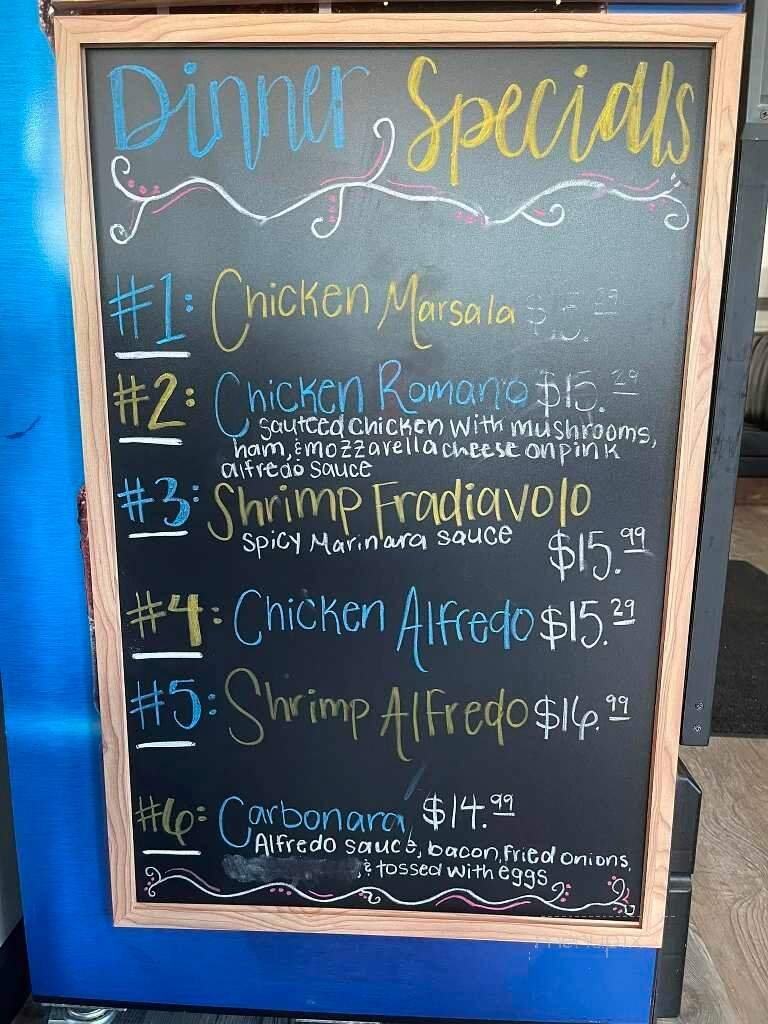 Dinner Specials
#1: Chicken Marsala $15.29
#2: Chicken Romano $15.29
sauteed chicken with mushrooms,
ham, & mozzarella cheese on pink
alfredo sauce
#3: Shrimp Fradiavolo
spicy Marinara sauce $15.99
#4: Chicken Alfredo $15.29
#5: Shrimp Alfredo $16.99
#6: Carbonara $14.99
Alfredo sauce, bacon, fried onions,
& tossed with eggs